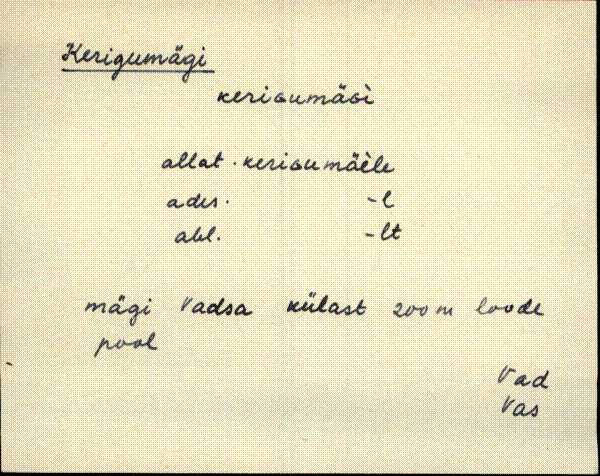 Kerigumägi
keriɢumäɢì
allat. keriɢumäèle
ades. -l
abl. -lt
mägi Vadsa külast 200 m loode
pool
Vad
Vas